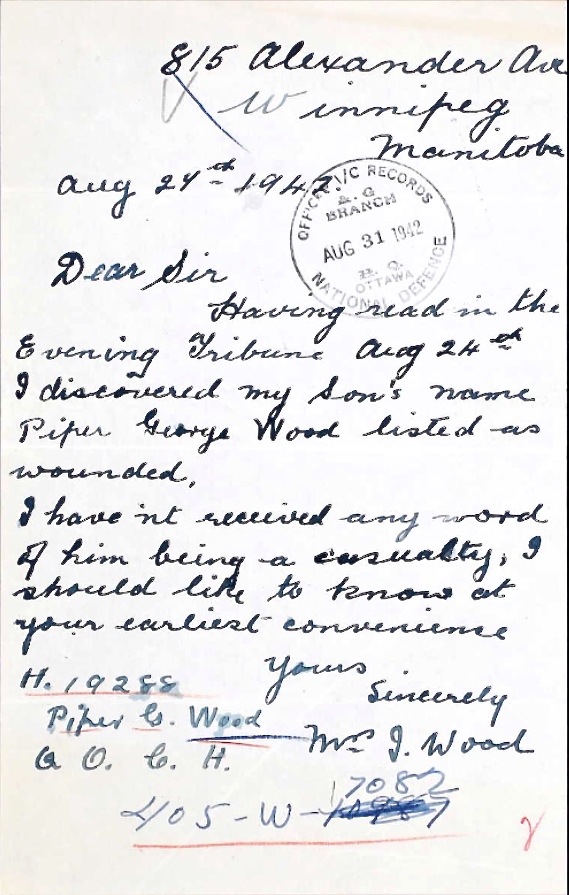 815 Alexander Ave
Winnipeg
Manitoba
Aug 24th 1942
OFFICER I/C RECORDS
A. G.
BRANCH
AUG 31 1942
H. Q.
OTTAWA
NATIONAL DEFENCE
Dear Sir
Having read in the
Evening Tribune Aug 24th
I discovered my Son's name
Piper George Wood listed as
wounded,
I have'nt received any word
of him being a casualty, I
should like to know at
your earliest convenience
Yours
Sincerely
Mrs J. Wood
H. 19288
Piper G. Wood
Q. O. C. H.
7082
405-W-